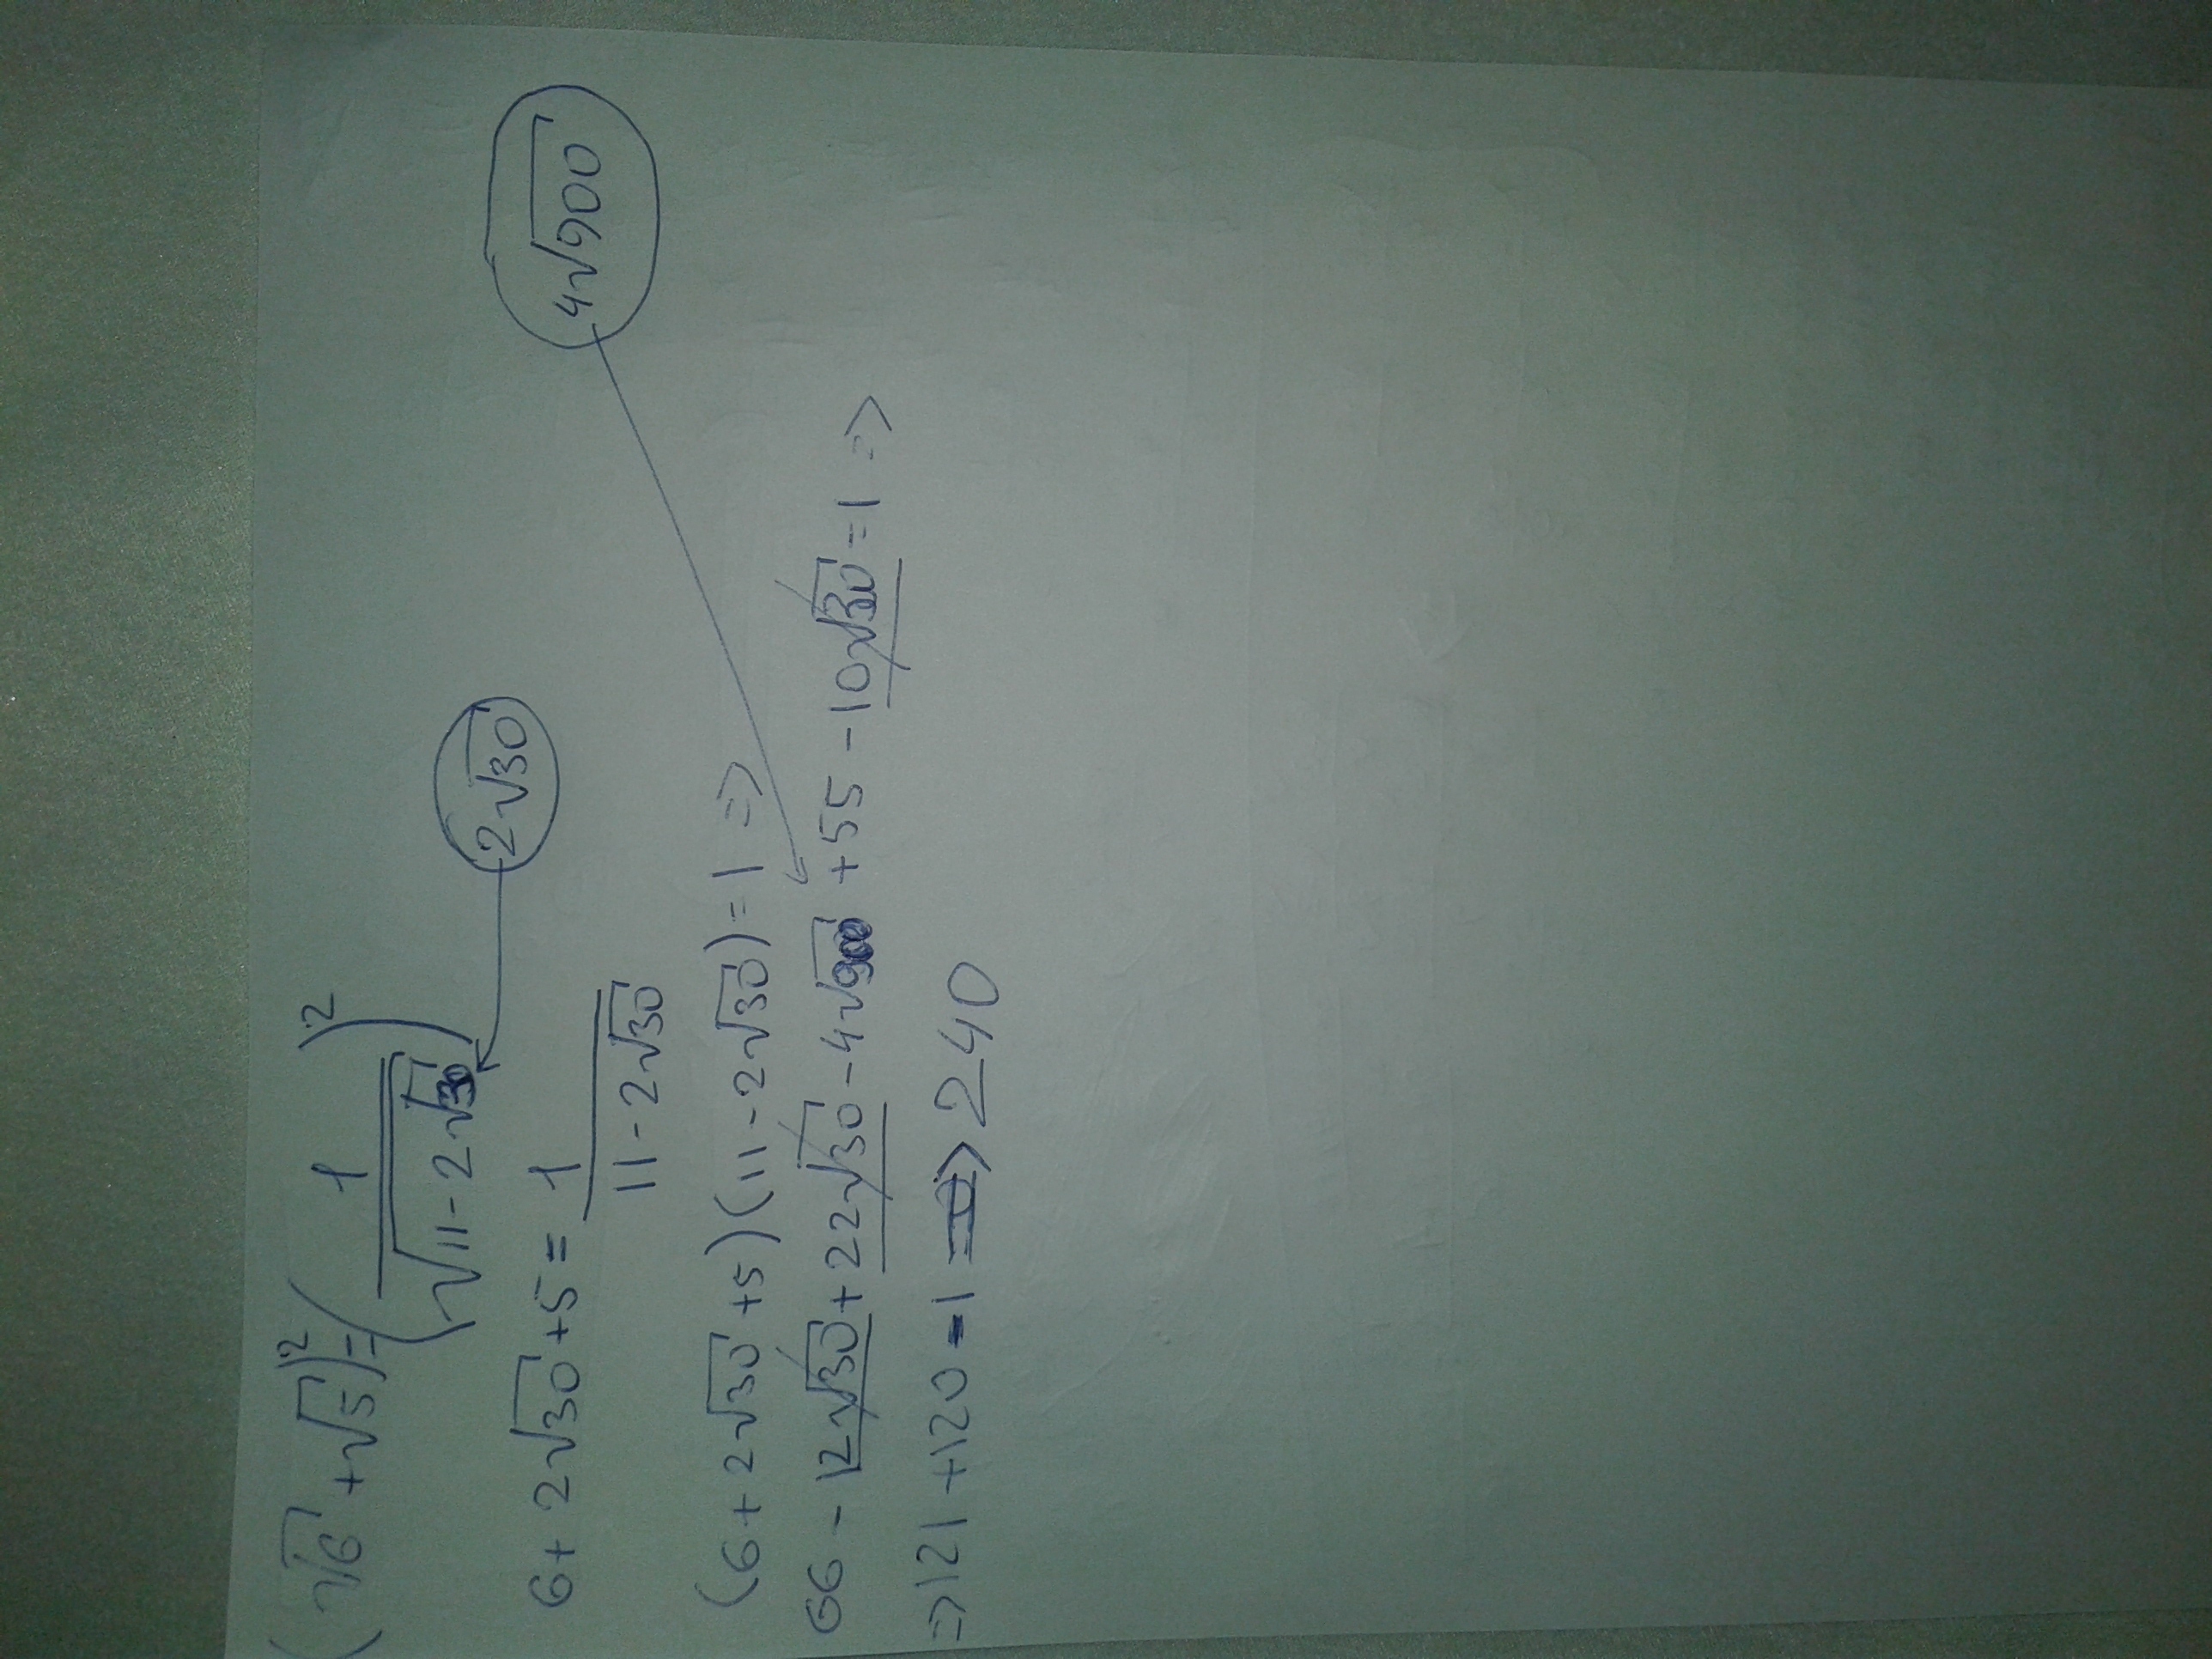 (√6 + √5)² = (1 / √(11 - 2√30))²
2√30
6 + 2√30 + 5 = 1 / (11 - 2√30)
4√900
(6 + 2√30 + 5)(11 - 2√30) = 1 =>
66 - 12√30 + 22√30 - 4√900 + 55 - 10√30 = 1 =>
=> 121 + 120 = 1 => 240